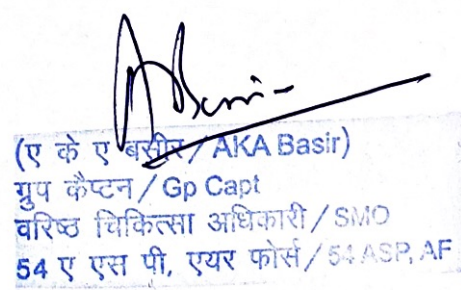 (ए के ए बसीर / AKA Basir)
ग्रुप कैप्टन / Gp Capt
वरिष्ठ चिकित्सा अधिकारी / SMO
54 ए एस पी, एयर फोर्स / 54 ASP, AF